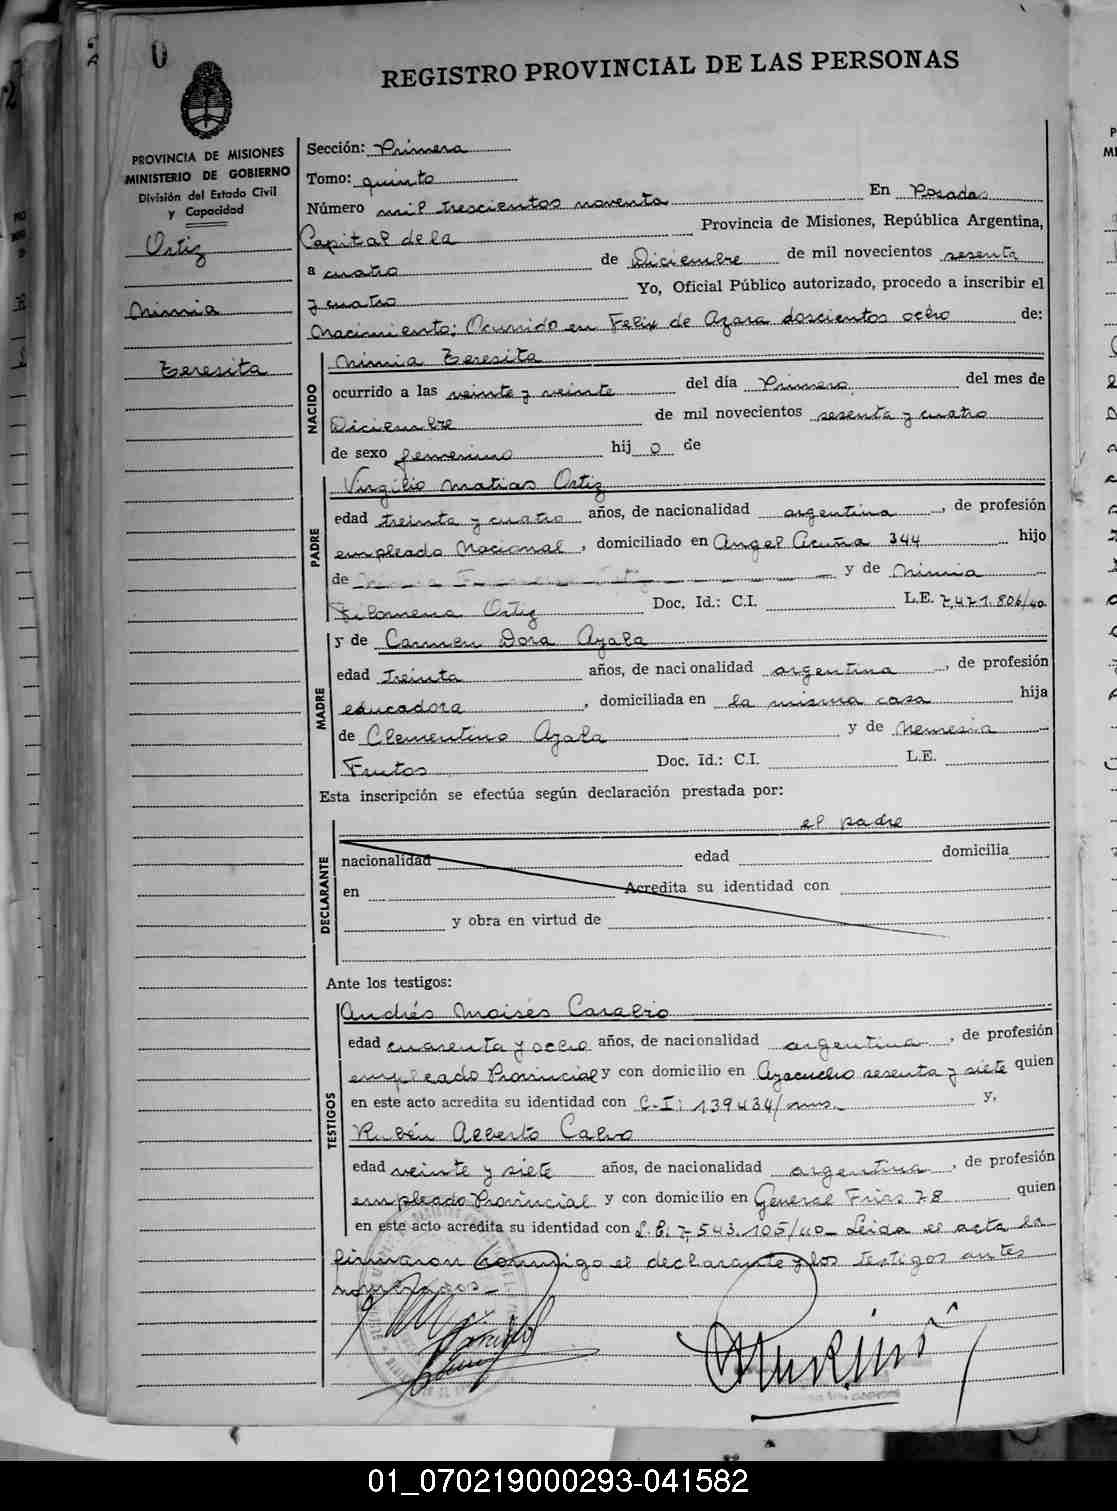 0
REGISTRO PROVINCIAL DE LAS PERSONAS
PROVINCIA DE MISIONES
MINISTERIO DE GOBIERNO
División del Estado Civil
y Capacidad
Ortiz
Nimia
Teresita
Sección: Primera
Tomo: quinto
Número mil trescientos noventa En Posadas
Capital de la Provincia de Misiones, República Argentina,
a cuatro de Diciembre de mil novecientos sesenta
y cuatro Yo, Oficial Público autorizado, procedo a inscribir el
Nacimiento: Ocurrido en Felix de Azara doscientos ocho de:
NACIDO
Nimia Teresita
ocurrido a las veinte y veinte del día Primero del mes de
Diciembre de mil novecientos sesenta y cuatro
de sexo femenino hij o de
PADRE
Virgilio Matias Ortiz
edad treinta y cuatro años, de nacionalidad argentina, de profesión
empleado Nacional, domiciliado en Angel Acuña 344 hijo
de y de Nimia
Filomena Ortiz Doc. Id.: C.I. L.E. 7.421.806/40
MADRE
y de Carmen Dora Ayala
edad treinta años, de nacionalidad argentina, de profesión
educadora, domiciliada en la misma casa hija
de Clementino Ayala y de Nemesia
Frutos Doc. Id.: C.I. L.E.
Esta inscripción se efectúa según declaración prestada por:
DECLARANTE
el padre
nacionalidad edad domicilia
en Acredita su identidad con
y obra en virtud de
Ante los testigos:
TESTIGOS
Andrés Moisés
edad cuarenta y ocho años, de nacionalidad argentina, de profesión
empleado Provincial y con domicilio en Ayacucho sesenta y siete quien
en este acto acredita su identidad con C.I: 139434/mns. y,
Rubén Alberto Calvo
edad veinte y siete años, de nacionalidad argentina, de profesión
empleado Provincial y con domicilio en General Frias 78 quien
en este acto acredita su identidad con L.E. 7.543.105/40 Leida el acta la
firmaron conmigo el declarante y los testigos antes
01_070219000293-041582